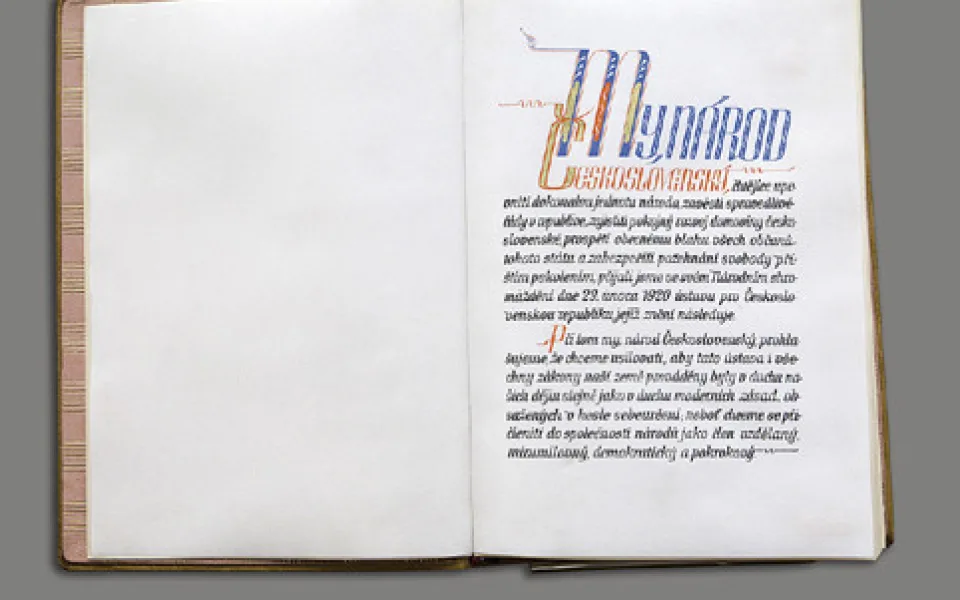 My, NÁROD
ČESKOSLOVENSKÝ, chtějíce upe-
vniti dokonalou jednotu národa, zavésti spravedlivé
řády v republice, zajistiti pokojný rozvoj domoviny česko-
slovenské, prospěti obecnému blahu všech občanů
tohoto státu a zabezpečiti požehnání svobody pří-
štím pokolením, přijali jsme ve svém Národním shro-
máždění dne 29. února 1920 ústavu pro Českoslo-
venskou republiku, jejíž znění následuje.
Při tom my, národ Československý, prohla-
šujeme, že chceme usilovati, aby tato ústava i vše-
chny zákony naší země prováděny byly v duchu na-
šich dějin stejně jako v duchu moderních zásad, ob-
sažených v hesle sebeurčení; neboť chceme se při-
členiti do společnosti národů jako člen vzdělaný,
mírumilovný, demokratický a pokrokový